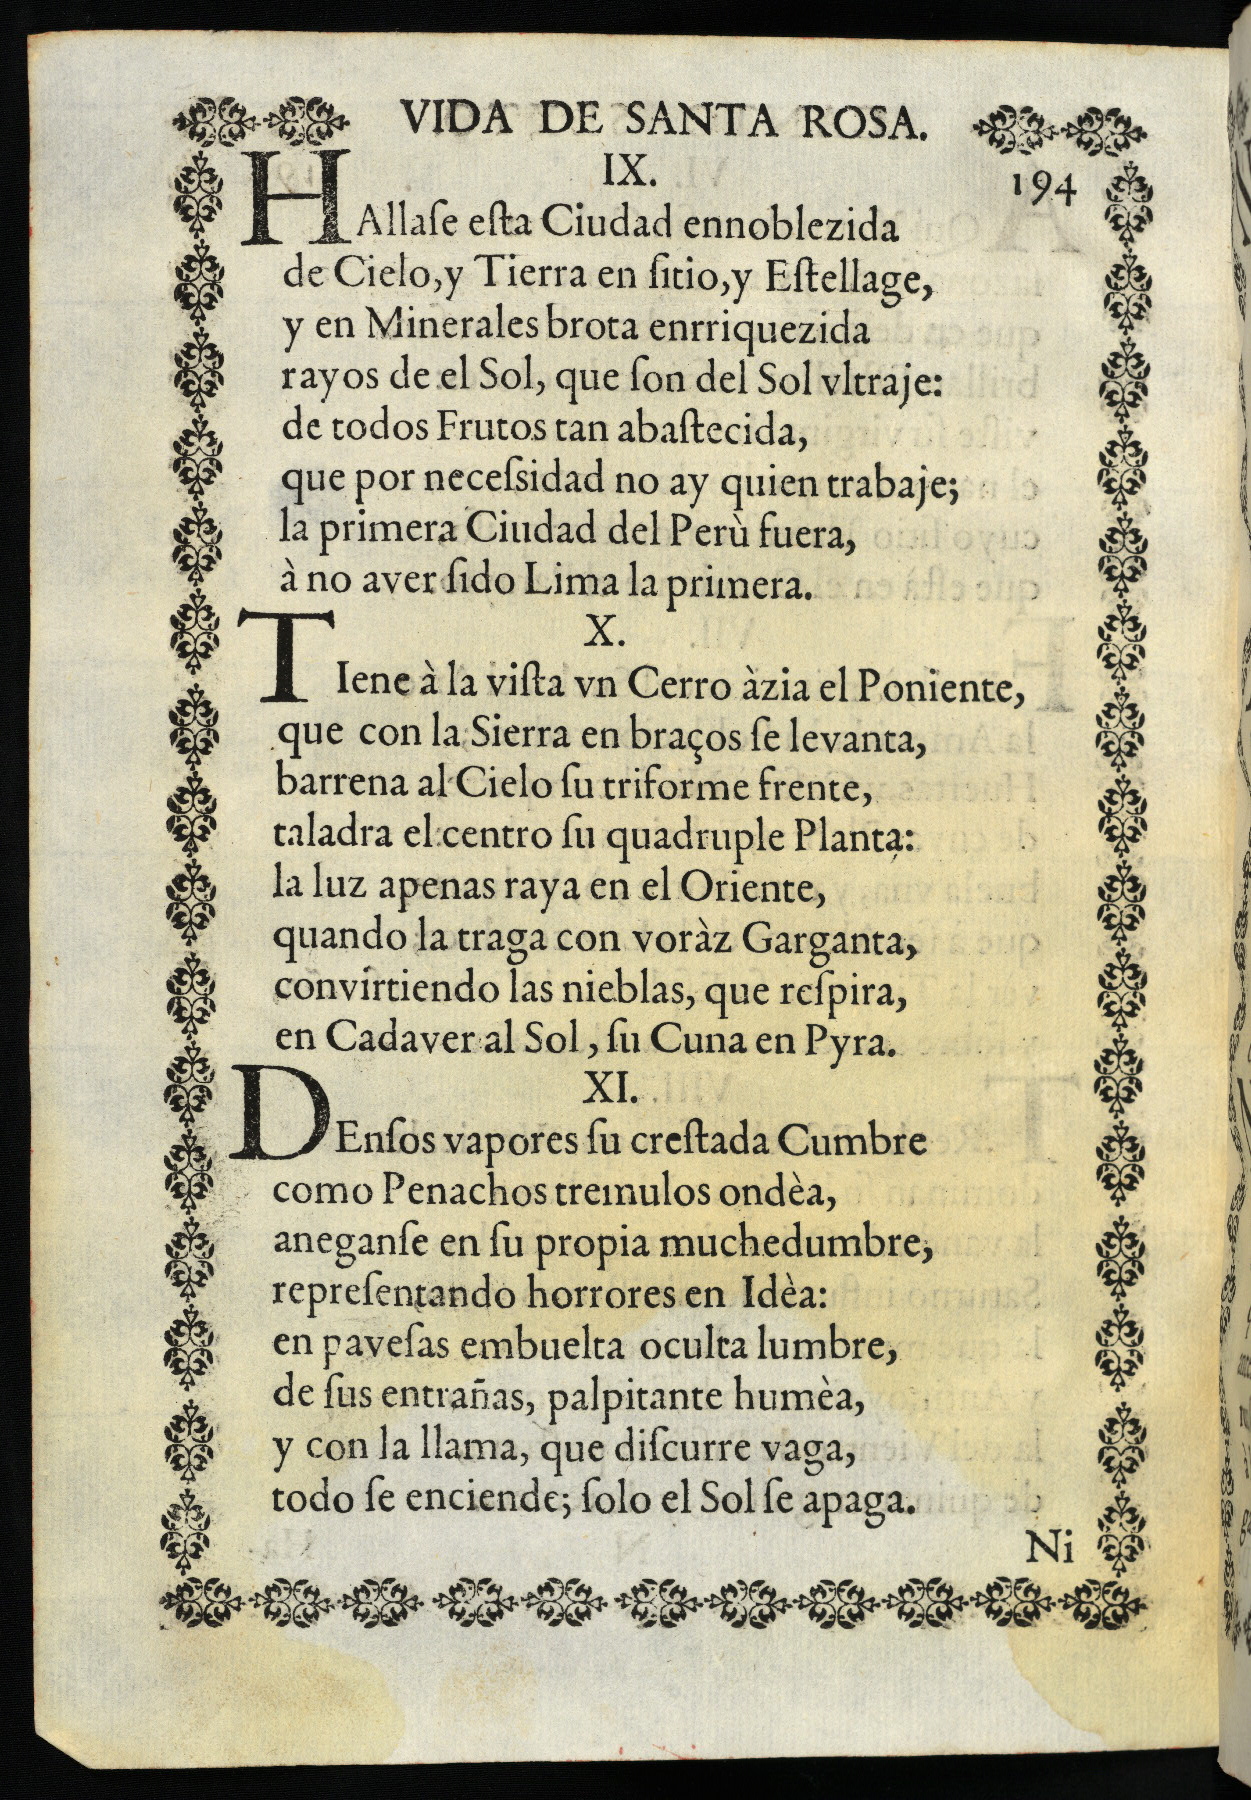 VIDA DE SANTA ROSA.
IX.
194
HAllaſe eſta Ciudad ennoblezida
de Cielo,y Tierra en ſitio,y Eſtellage,
y en Minerales brota enrriquezida
rayos de el Sol, que ſon del Sol vltraje:
de todos Frutos tan abaſtecida,
que por neceſsidad no ay quien trabaje;
la primera Ciudad del Perù fuera,
à no aver ſido Lima la primera.
X.
TIene à la viſta vn Cerro àzia el Poniente,
que con la Sierra en braços ſe levanta,
barrena al Cielo ſu triforme frente,
taladra el centro ſu quadruple Planta:
la luz apenas raya en el Oriente,
quando la traga con voràz Garganta,
convirtiendo las nieblas, que reſpira,
en Cadaver al Sol, ſu Cuna en Pyra.
XI.
DEnſos vapores ſu creſtada Cumbre
como Penachos tremulos ondèa,
aneganſe en ſu propia muchedumbre,
repreſentando horrores en Idèa:
en paveſas embuelta oculta lumbre,
de ſus entrañas, palpitante humèa,
y con la llama, que diſcurre vaga,
todo ſe enciende; ſolo el Sol ſe apaga.
Ni